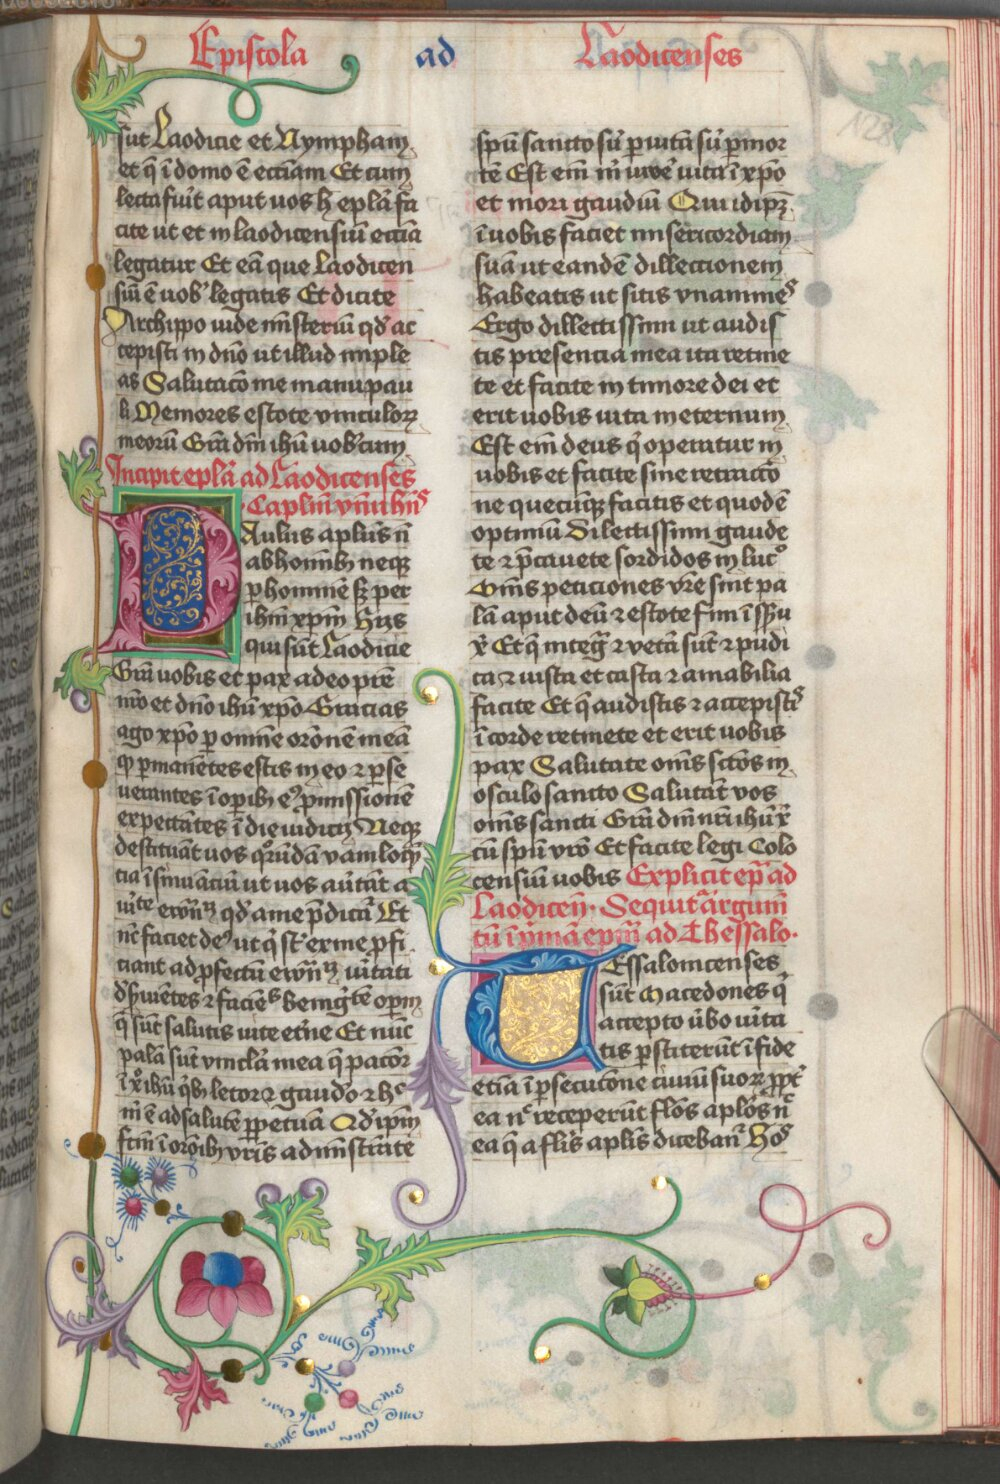 Epistola ad Laodicenses
128
sūt Laodicie et Nympham
et q̄ ī domo ē eccłiam Et cum
lecta fuīt aput uos h̄ epl̄a fa
cite ut et in laodicensiū eccłia
legatur Et eā que laodicen
siū ē uob' legatis Et dicite
Archippo uide mīsteriū qd' ac
cepisti in dn̄o ut illud imple
as Salutacō me manu pau
li Memores estote vinculoꝝ
meorū Gr̄a dn̄i ihū uob'cum
Incipit epl̄a ad Laodicenses
Caplm̄ vnū hn̄s
Paulus apl̄us n̄
ab hoībꝫ neqꝫ
ꝑ hominē sꝫ per
ihm̄ xpm̄ Hijs
qui sūt Laodicie
Gr̄a uobis et pax a deo pr̄e
nr̄o et dn̄o ihū xp̄o Gracias
ago xp̄o ꝑ omnē or̄onē meā
qꝫ ꝑmanētes estis in eo ⁊ ꝑse
uerantes ī oꝑibꝫ eꝰ ꝓmissionē
expectātes ī die iudicij Neqꝫ
destituāt uos qr̄ūdā vaniloqꝫ
cia īsinuanciū ut uos au̾tāt a
u̾itate ewn̄ꝫ qd' a me p̄dicat̄ Et
nc̄ faciet deꝰ ut q̄ st̄ ex me ꝓfi
ciant ad ꝓfectū ewn̄ꝫ u̾itati
ds̾uientes ⁊ faciēs benig̾tē opm̄
q̄ sūt salutis uite et̾ne Et nūc
palā sūt vincl̄a mea q̄ pacior
ī xꝰ ihū qb̄ꝫ letor ⁊ gaudeo ⁊ hꝰ
m̄ ē ad salutē ꝑpetuā Qd' ipm̄
fcm̄ ī or̄oībꝫ vr̄is administrāte
spū sancto siꝰ ꝑ uitā siꝰ ꝑ mor
tē Est em̄ m̄ iuuē uita ī xp̄o
et mori gaudiū Qui id ipꝫ
ī uobis faciet misericordiam
suā ut eandē dillectionem
habeatis ut sitis vnanimeꝰ
Ergo dillectissimi ut audis
tis presencia mea ita retine
te et facite in timore dei et
erit uobis uita in eternum
Est em̄ deus q̄ operatur in
uobis et facite sine retracco
ne quecūqꝫ facitis et quod ē
optimū Dilectissimi gaude
te ⁊ p̄cauete sordidos in lucꝰ
Om̄s peticiones vr̄e sint pa
lā aput deū ⁊ estote firmi ī sp̄u
xꝰ Et q̄ integ̾ ⁊ u̾eta sūt ⁊ pudi
ca ⁊ iusta et casta ⁊ amabilia
facite Et q̄ audistis ⁊ accepistꝰ
ī corde retinete et erit uobis
pax Salutate om̄s sc̄tos in
osculo sancto Salutāt vos
om̄s sancti Gr̄a dn̄i nr̄i ihū xꝰ
cū spū vr̄o Et facite legi Colo
censiū uobis Explicit ep̄a ad
Laodicen̄. Sequit̾ argum̄
tū ī p̾mā epm̄ ad Thessalo.
Tessalonicenses
sūt Macedones q̄
accepto u̾bo u̾ita
tis ꝑstiterūt ī fide
etiā ī ꝑsecucōne ciuiū suoꝝ ꝓpt̾
ea nꝰ receperūt fl̄os apl̄os nꝰ
ea q̄ a flīs apl̄is dicebant̾ Hos